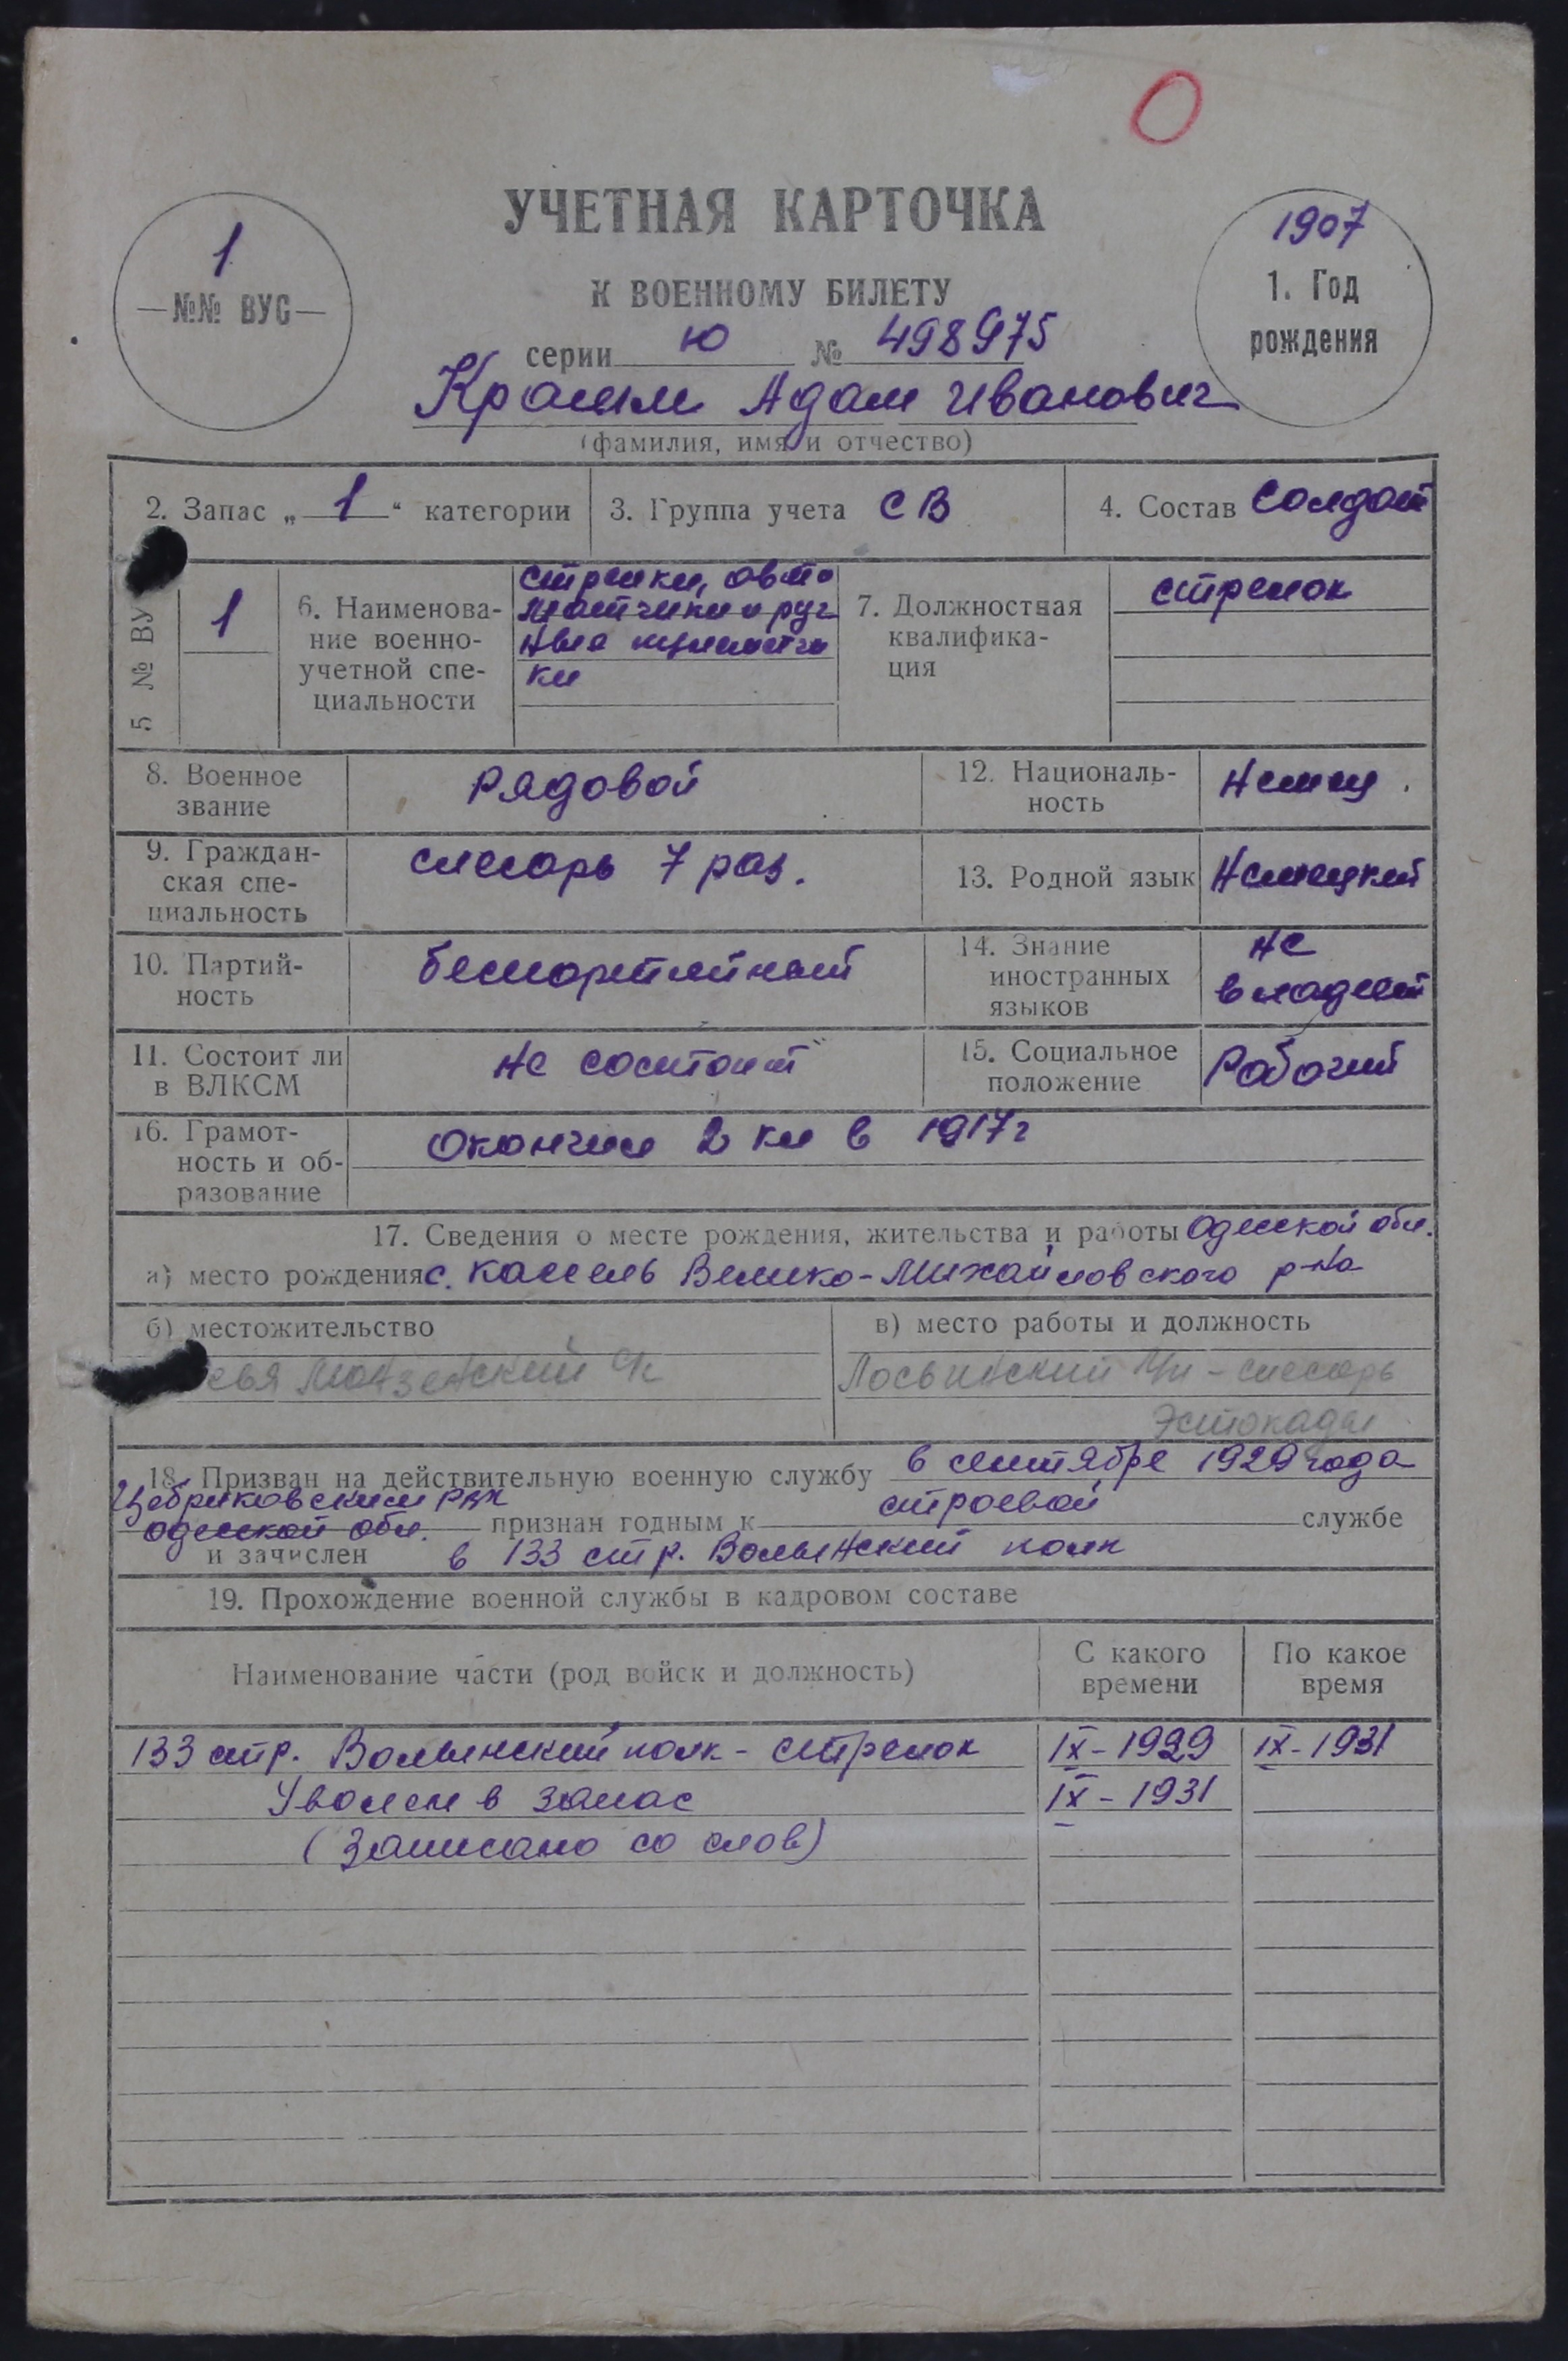 УЧЕТНАЯ КАРТОЧКА
К ВОЕННОМУ БИЛЕТУ
1
—№№ ВУС—
1907
1. Год
рождения
серии Ю № 498975
Адам Иванович
(фамилия, имя и отчество)
2. Запас „ 1 “ категории
3. Группа учета СВ
4. Состав Солдат
5 № ВУ
1
6. Наименова-
ние военно-
учетной спе-
циальности
стрелки, авто
матчики и руч
ные пулеметчи
ки
7. Должностная
квалифика-
ция
стрелок
8. Военное
звание
рядовой
12. Националь-
ность
Немец
9. Граждан-
ская спе-
циальность
слесарь 7 раз.
13. Родной язык Немецкий
10. Партий-
ность
беспартийный
14. Знание
иностранных
языков
не
владеет
11. Состоит ли
в ВЛКСМ
не состоит
15. Социальное
положение
Рабочий
16. Грамот-
ность и об-
разование
Окончил 2 кл в 1917г
17. Сведения о месте рождения, жительства и работы Одесской обл.
а) место рождения с. Кассель Велико-Михайловского р-на
б) местожительство
в) место работы и должность
Лосьвинский - слесарь
Эстокады
18. Призван на действительную военную службу в сентябре 1929 года
Цебриковским РВК
одесской обл. признан годным к строевой службе
и зачислен в 133 стр. Волынский полк
19. Прохождение военной службы в кадровом составе
Наименование части (род войск и должность)
С какого
времени
По какое
время
133 стр. Волынский полк - стрелок IX-1929 IX-1931
Уволен в запас IX-1931
(Записано со слов)